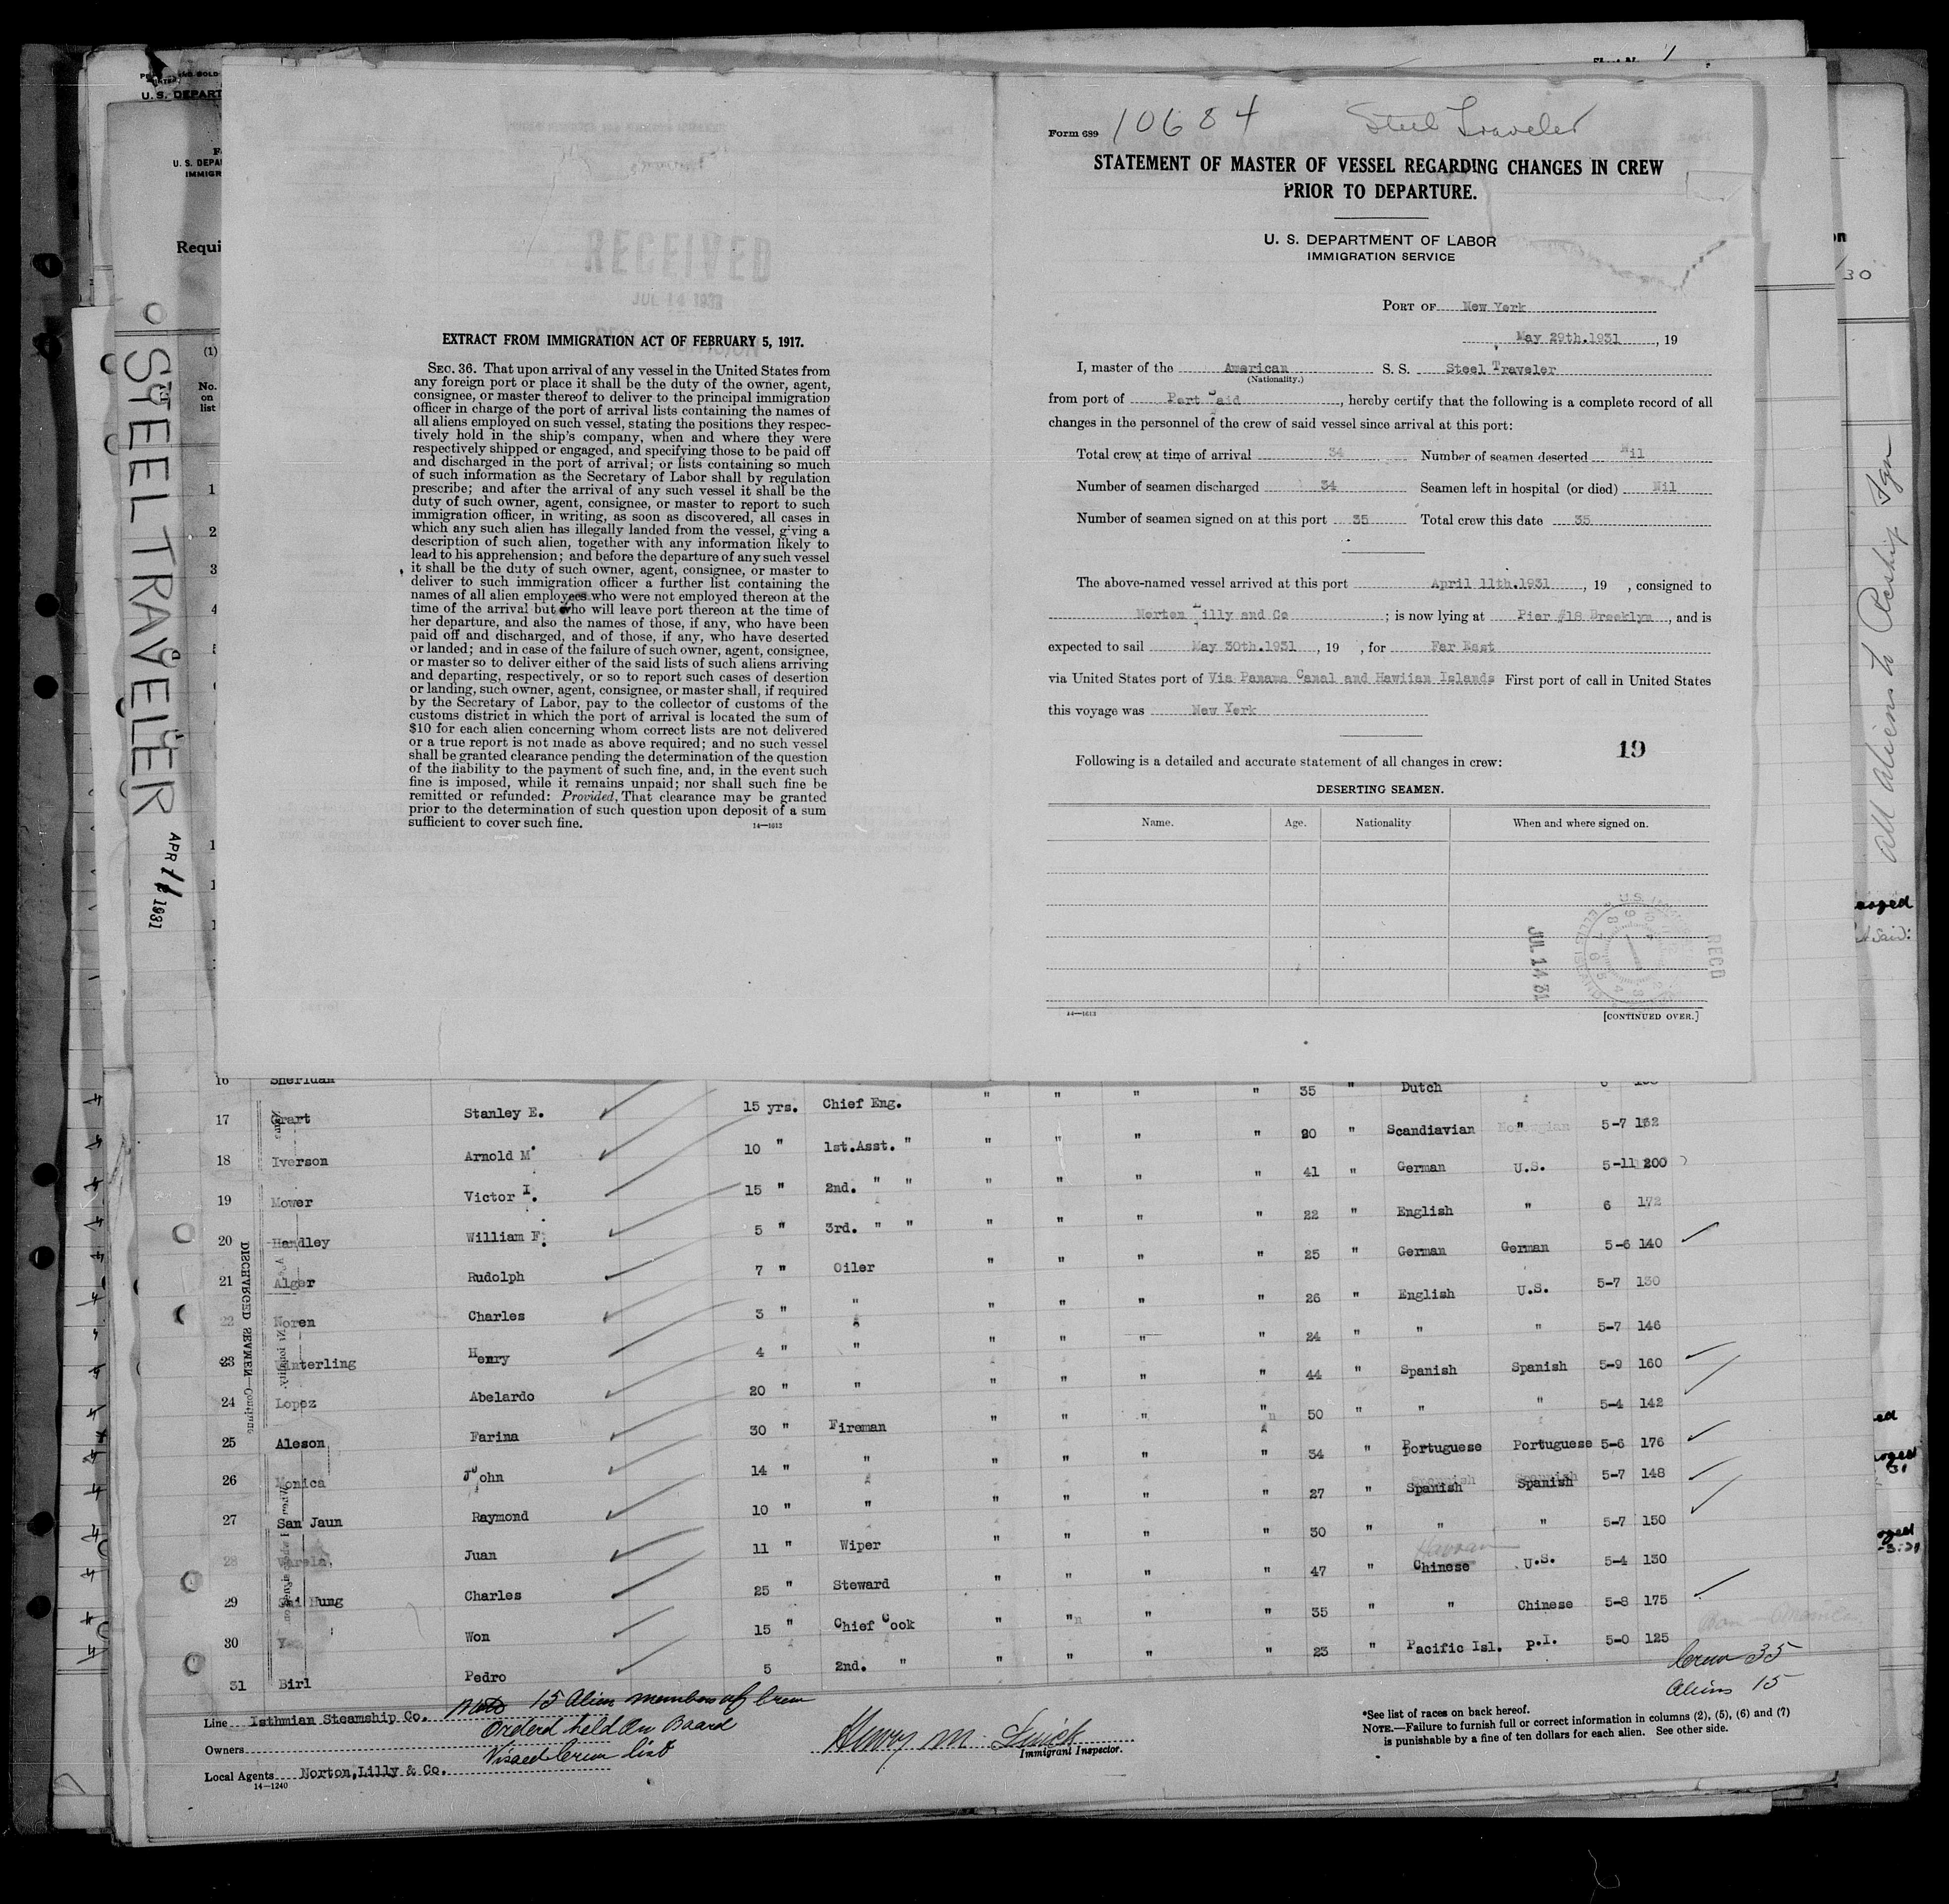 U. S. DEPART
U. S. DEPA
IMMIGR
Requi
(1)
No.
on
list
STEEL TRAVELER
APR 11 1931
RECEIVED
JUL 14 1931
EXTRACT FROM IMMIGRATION ACT OF FEBRUARY 5, 1917.
SEC. 36. That upon arrival of any vessel in the United States from
any foreign port or place it shall be the duty of the owner, agent,
consignee, or master thereof to deliver to the principal immigration
officer in charge of the port of arrival lists containing the names of
all aliens employed on such vessel, stating the positions they respec-
tively hold in the ship's company, when and where they were
respectively shipped or engaged, and specifying those to be paid off
and discharged in the port of arrival; or lists containing so much
of such information as the Secretary of Labor shall by regulation
prescribe; and after the arrival of any such vessel it shall be the
duty of such owner, agent, consignee, or master to report to such
immigration officer, in writing, as soon as discovered, all cases in
which any such alien has illegally landed from the vessel, giving a
description of such alien, together with any information likely to
lead to his apprehension; and before the departure of any such vessel
it shall be the duty of such owner, agent, consignee, or master to
deliver to such immigration officer a further list containing the
names of all alien employees who were not employed thereon at the
time of the arrival but who will leave port thereon at the time of
her departure, and also the names of those, if any, who have been
paid off and discharged, and of those, if any, who have deserted
or landed; and in case of the failure of such owner, agent, consignee,
or master so to deliver either of the said lists of such aliens arriving
and departing, respectively, or so to report such cases of desertion
or landing, such owner, agent, consignee, or master shall, if required
by the Secretary of Labor, pay to the collector of customs of the
customs district in which the port of arrival is located the sum of
$10 for each alien concerning whom correct lists are not delivered
or a true report is not made as above required; and no such vessel
shall be granted clearance pending the determination of the question
of the liability to the payment of such fine, and, in the event such
fine is imposed, while it remains unpaid; nor shall such fine be
remitted or refunded: Provided, That clearance may be granted
prior to the determination of such question upon deposit of a sum
sufficient to cover such fine.
14—1613
Form 689 10684 Steel Traveler
STATEMENT OF MASTER OF VESSEL REGARDING CHANGES IN CREW
PRIOR TO DEPARTURE.
U. S. DEPARTMENT OF LABOR
IMMIGRATION SERVICE
PORT OF New York
May 29th.1931, 19
I, master of the American S. S. Steel Traveler
(Nationality.)
from port of Port Said, hereby certify that the following is a complete record of all
changes in the personnel of the crew of said vessel since arrival at this port:
Total crew at time of arrival 34 Number of seamen deserted Nil
Number of seamen discharged 34 Seamen left in hospital (or died) Nil
Number of seamen signed on at this port 35 Total crew this date 35
The above-named vessel arrived at this port April 11th.1931, 19 , consigned to
Norton Lilly and Co ; is now lying at Pier #18 Brooklyn, and is
expected to sail May 30th.1931, 19 , for Far East
via United States port of Via Panama Canal and Hawiian Islands First port of call in United States
this voyage was New York
19
Following is a detailed and accurate statement of all changes in crew:
DESERTING SEAMEN.
Name. Age. Nationality When and where signed on.
JUL 14 31
RECD
14—1613
[CONTINUED OVER.]
all aliens to Reship Sgn
16 Sheridan 35 " Dutch
17 Grart Stanley E. 15 yrs. Chief Eng. " " " " 20 " Scandiavian " 5-7 152
18 Iverson Arnold M. 10 " 1st.Asst. " " " " " 41 " German U.S. 5-11 200
19 Mower Victor I. 15 " 2nd. " " " " " " 22 " English " 6 172
20 Handley William F. 5 " 3rd. " " " " " " 25 " German German 5-6 140
21 Alger Rudolph 7 " Oiler " " " " 26 " English U.S. 5-7 130
22 Noren Charles 3 " " " " " " 24 " " " 5-7 146
23 Winterling Henry 4 " " " " " " 44 " Spanish Spanish 5-9 160
24 Lopez Abelardo 20 " " " " " " 50 " " " 5-4 142
25 Aleson Farina 30 " Fireman " " " " 34 " Portuguese Portuguese 5-6 176
26 Monica John 14 " " " " " " 27 " Spanish Spanish 5-7 148
27 San Jaun Raymond 10 " " " " " " 30 " " " 5-7 150
28 Varela, Juan 11 " Wiper " " " " 47 " Chinese U.S. 5-4 130
29 Sai Hung Charles 25 " Steward " " " " 35 " " Chinese 5-8 175
30 Won 15 " Chief Cook " " " " 23 " Pacific Isl. P.I. 5-0 125
31 Birl Pedro 5 2nd. " " " "
DISCHARGED SEAMEN—Continued
Crew 35
Aliens 15
Line Isthmian Steamship Co. Note 15 Alien members of Crew
Orderd held On Board
Owners
Visaed Crew list
Local Agents Norton,Lilly & Co.
14—1240
Immigrant Inspector.
*See list of races on back hereof.
NOTE.—Failure to furnish full or correct information in columns (2), (5), (6) and (7)
is punishable by a fine of ten dollars for each alien. See other side.